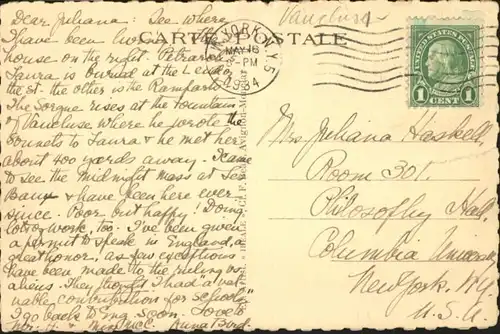 Vaucluse
Dear Juliana: See where
I have been
house on the right. Petrarch
Laura is buried at the end of
the st. the other is the Ramparts.
The Sorgue rises at the fountain
of Vaucluse where he wrote the
sonnets to Laura & he met her
about 400 yards away. I came
to see the midnight mass at Les
Baux & have been here ever
since. Poor but happy! Doing
lots of work, too. I've been given
a permit to speak in England, a
great honor, as few exceptions
have been made to the ruling vs.
aliens. They thought I had "a val-
uable contribution for schools."
I go back to Eng. soon. Love to
Anna Bird
CARTE POSTALE
NEW YORK, N.Y. 5
MAY 18
-PM
1934
UNITED STATES POSTAGE
1 CENT 1
Mrs Juliana Haskell
Room 301.
Philosophy Hall,
Columbia University
New York. N.Y.
U.S.A.